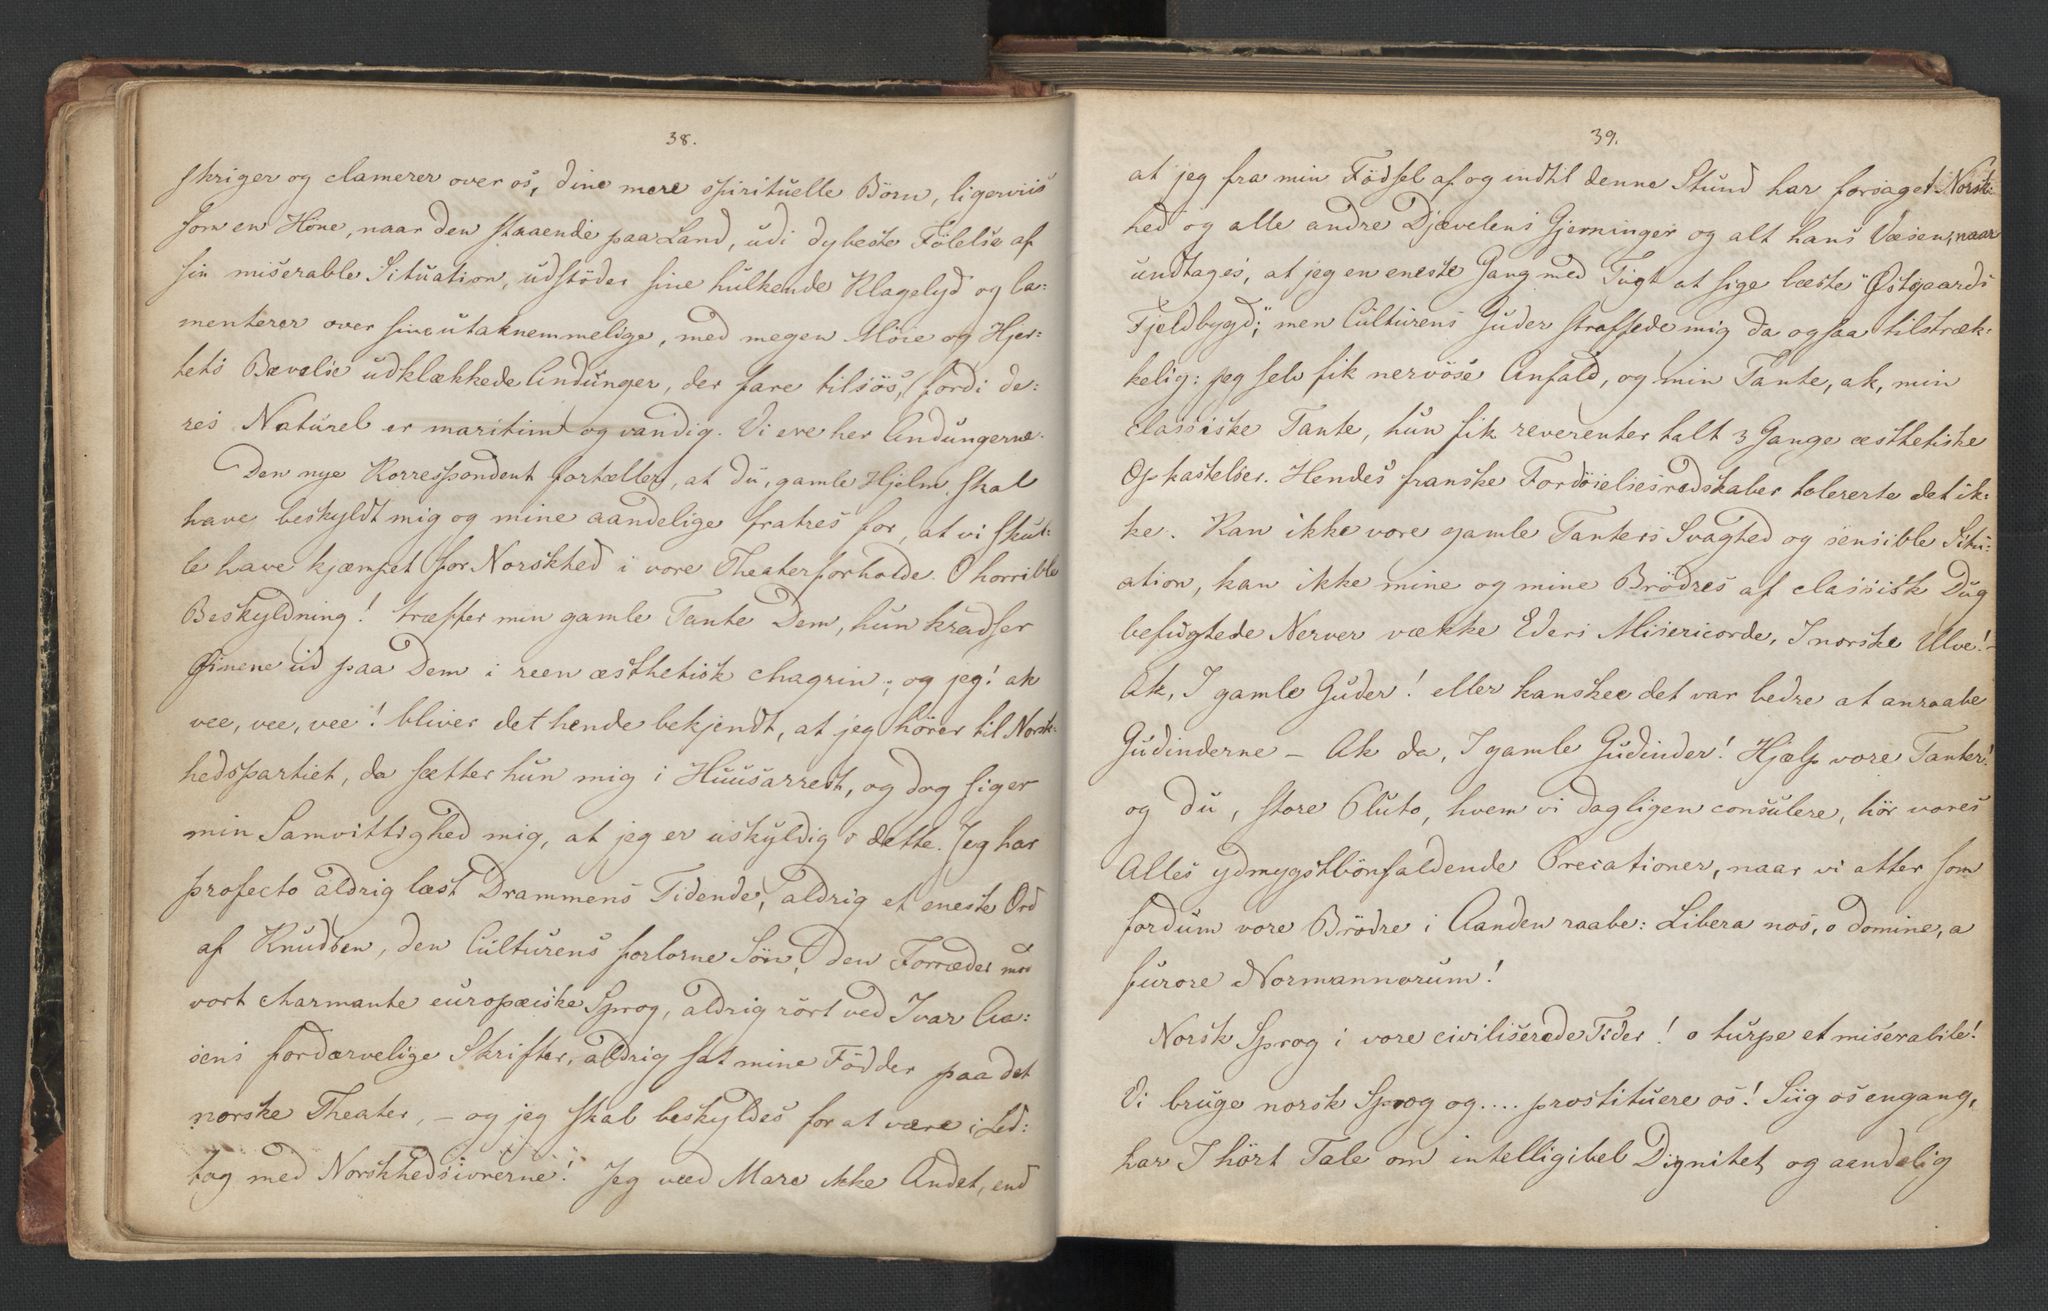 38.
skriger og clamerer over os, dine mere spirituelle Börn, ligerviis
som en Höne, naar den staaende paa Land, udi dybeste Fölelse af
sin miserable Situation, udstöder sine hulkende Klagelyd og la:
menterer over sine utaknemmelige, med megen Möie og Hjer:
tets Bævelse udklækkede Andunger, der fare tilsös, fordi de:
res Naturel er maritimt og vandig. Vi ere her Andungerne.
Den nye Korrespondent fortæller, at du, gamle Hjelm, skal
have beskyldt mig og mine aandelige fratres for, at vi skul:
le have kjæmpet for Norskhed i vore Theaterforholde. O horrible
Beskyldning! træffer min gamle Tante Dem, hun kradser
Öinene ud paa Dem i reen æsthetisk chagrin; og jeg! ak
vee, vee, vee! bliver det hende bekjendt, at jeg hörer til Norsk:
hedspartiet, da sætter hun mig i Huusarrest, og dog siger
min Samvittighed mig, at jeg er uskyldig i dette. Jeg har
profecto aldrig læst Drammens Tidende, aldrig et eneste Ord
af Knudsen, den Culturens forlorne Sön, den Forræder mod
vort charmante europæiske Sprog, aldrig rört ved Ivar Aa:
sens fordærvelige Skrifter, aldrig sat mine Födder paa det
norske Theater, – og jeg skal beskyldes for at være i Led:
tog med Norskhedsivrerne! Jeg veed Mare ikke Andet, end
39.
at jeg fra min Födsel af og indtil denne Stund har forsaget Norsk:
hed og alle andre Djævelens Gjerninger og alt hans Væsen, naar
undtages, at jeg en eneste Gang med Tugt at sige læste "Östgaards
Fjeldbygd"; men Culturens Guder straffede mig da ogsaa tilstræk:
kelig: jeg selv fik nervöse Anfald, og min Tante, ak, min
classiske Tante, hun fik reverenter talt 3 Gange æsthetiske
Opkastelser. Hendes franske Fordöielsesredskaber tolererte det ik:
ke. Kan ikke vore gamle Tanters Svaghed og sensible Situ:
ation, kan ikke mine og mine Brödres af classisk Dug
befugtede Nerver vække Eders Misericorde, I norske Ulve! –
Ak, I gamle Guder! eller kanskee det var bedre at anraabe
Gudinderne – Ak da, I gamle Gudinder! Hjælp vore Tanter!
og du, store Pluto, hvem vi dagligen consulere, hör vores
Alles ydmygstbönfaldende Precationer, naar vi atter som
fordum vore Brödre i Aanden raabe: Libera nos, o domine, a
furore Normannorum!
Norsk Sprog i vore civiliserede Tider! o turpe et miserabile!
Vi bruge norsk Sprog og .... prostituere os! Siig os engang,
har I hört Tale om intelligibel Dignitet og aandelig